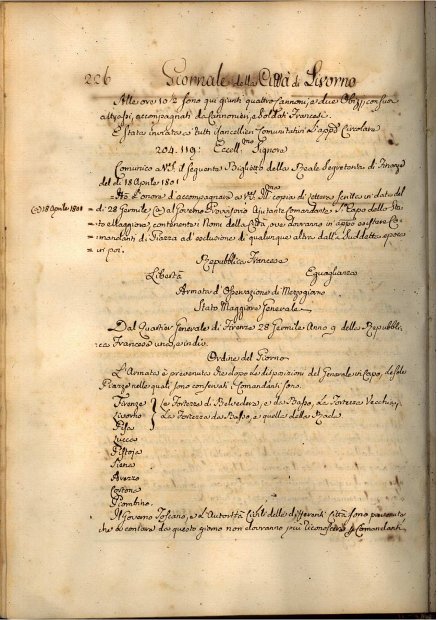 226 Giornale della Città di Livorno
Alle ore 10 1/2 sono qui giunti quattro Cannoni, e due Obizzi con suoi
attrassi, accompagnati da Cannonieri, e Soldati Francesi.
È stata inviata a tutti Cancellieri Comunitativi l'appo Circolare
204. 119: Eccell.mo Signore
Comunico a V.S. il seguente Biglietto della Reale Segreteria di Finanze
del dì 18 Aprile 1801
= Ho l'onore d'accompagnare a V.S. Ill.ma copia di Lettera scritta in data del
(a) 18 Aprile 1801 = dì 28 Germile (a) al Governo Provvisorio Ajutante Comandante Capo dello Sta-
= to Maggiore, contenente i Nomi delle Città, ove dovranno in appo esistere Co-
= mandanti di Piazza ad esclusione di qualunque altro dalla suddetta epoca
= in poi.
Repubblica Francese
Libertà Eguaglianza
Armata d'Osservazione di Mezzogiorno
Stato Maggiore Generale
Dal Quartier Generale di Firenze 28 Germile Anno 9 della Repubbli-
ca Francese una, e indiv.
Ordine del Giorno
L'Armata è prevenuta che dopo le disposizioni del Generale in Capo, le sole
Piazze nelle quali sono conservati i Comandanti sono.
Firenze } le Fortezze di Belvedere, e da Basso, La Fortezza Vecchia,
Livorno } La Fortezza da Basso, e quella della
Pisa
Lucca
Pistoja
Siena
Arezzo
Cortona
Piombino.
Il Governo Toscano, e l'Autorità Civili delle differenti Città sono prevenute
che a contare da questo giorno non dovranno più riconoscere Comandanti